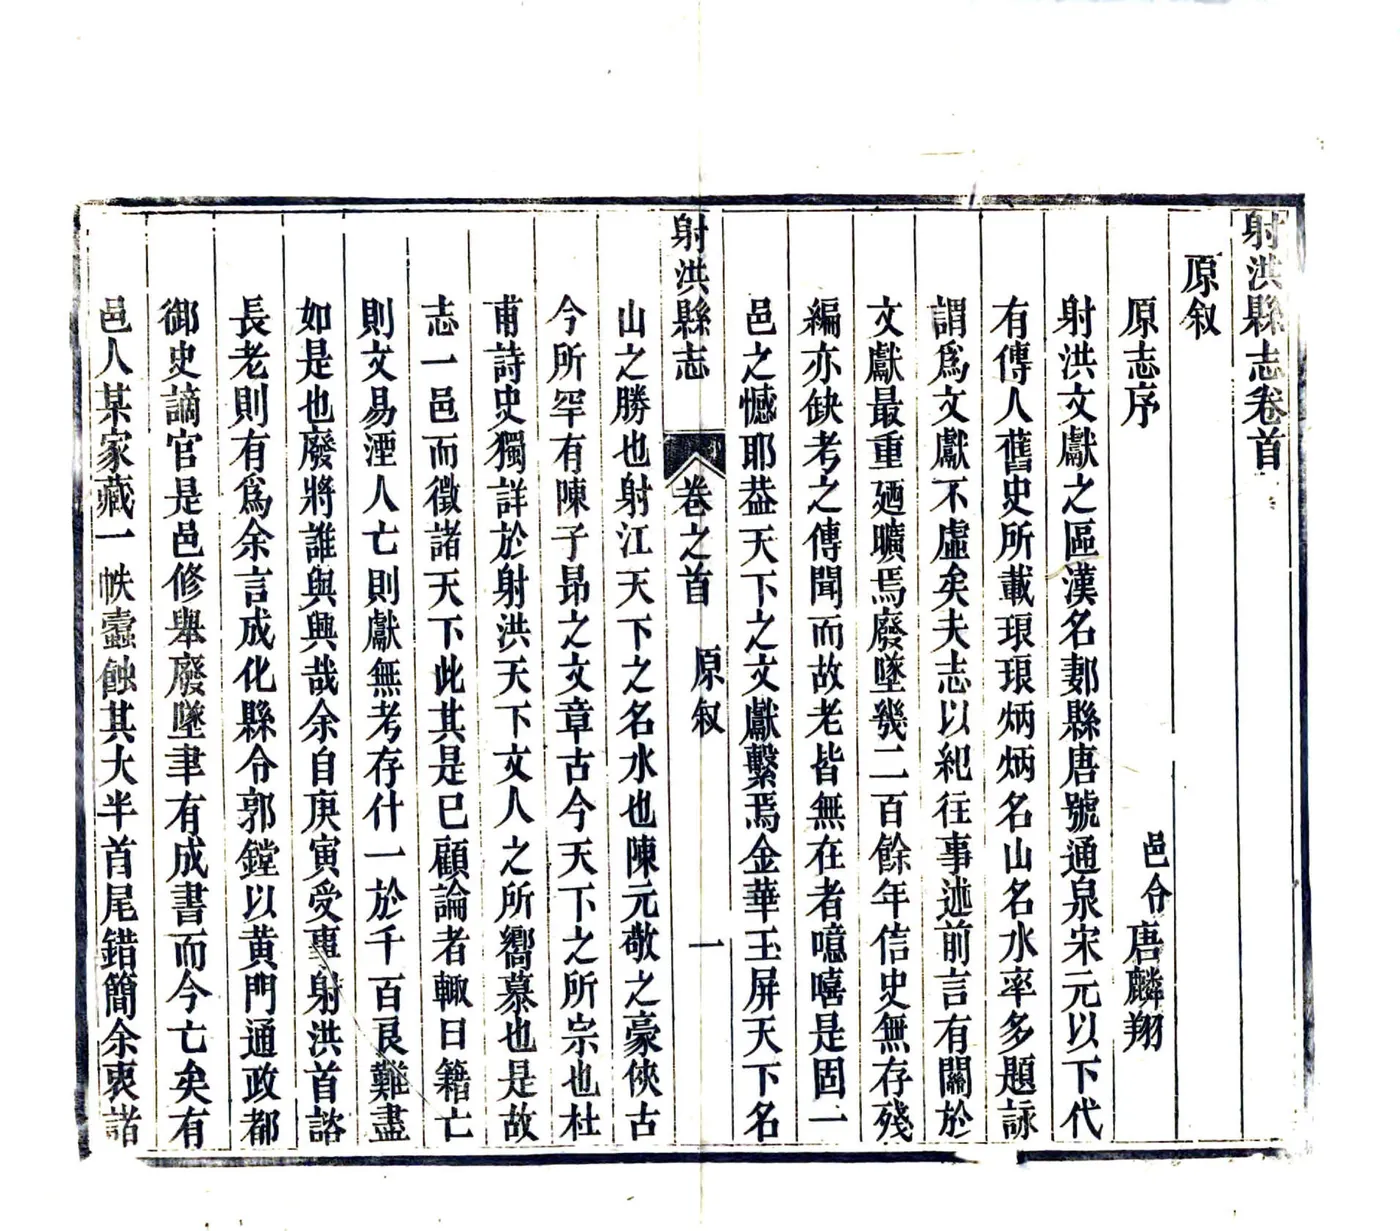 射洪縣志卷首
原叙
原志序
邑令唐麟翔
射洪文獻之區漢名郪縣唐號通泉宋元以下代
有傳人舊史所載琅琅炳炳名山名水率多題詠
謂爲文獻不虛矣夫志以紀往事述前言有關於
文獻最重廼曠焉廢墜幾二百餘年信史無存殘
編亦缺考之傳聞而故老皆無在者噫嘻是固一
邑之憾耶葢天下之文獻繫焉金華玉屏天下名
射洪縣志
卷之首
原叙
一
山之勝也射江天下之名水也陳元敬之豪俠古
今所罕有陳子昂之文章古今天下之所宗也杜
甫詩史獨詳於射洪天下文人之所嚮慕也是故
志一邑而徵諸天下此其是已顧論者輙曰籍亡
則文易湮人亡則獻無考存什一於千百艮難盡
如是也廢將誰與興哉余自庚寅受事射洪首諮
長老則有爲余言成化縣令郭鏜以黃門通政都
御史謫官是邑修舉廢墜聿有成書而今亡矣有
邑人某家藏一帙蠹蝕其大半首尾錯簡余衷諸